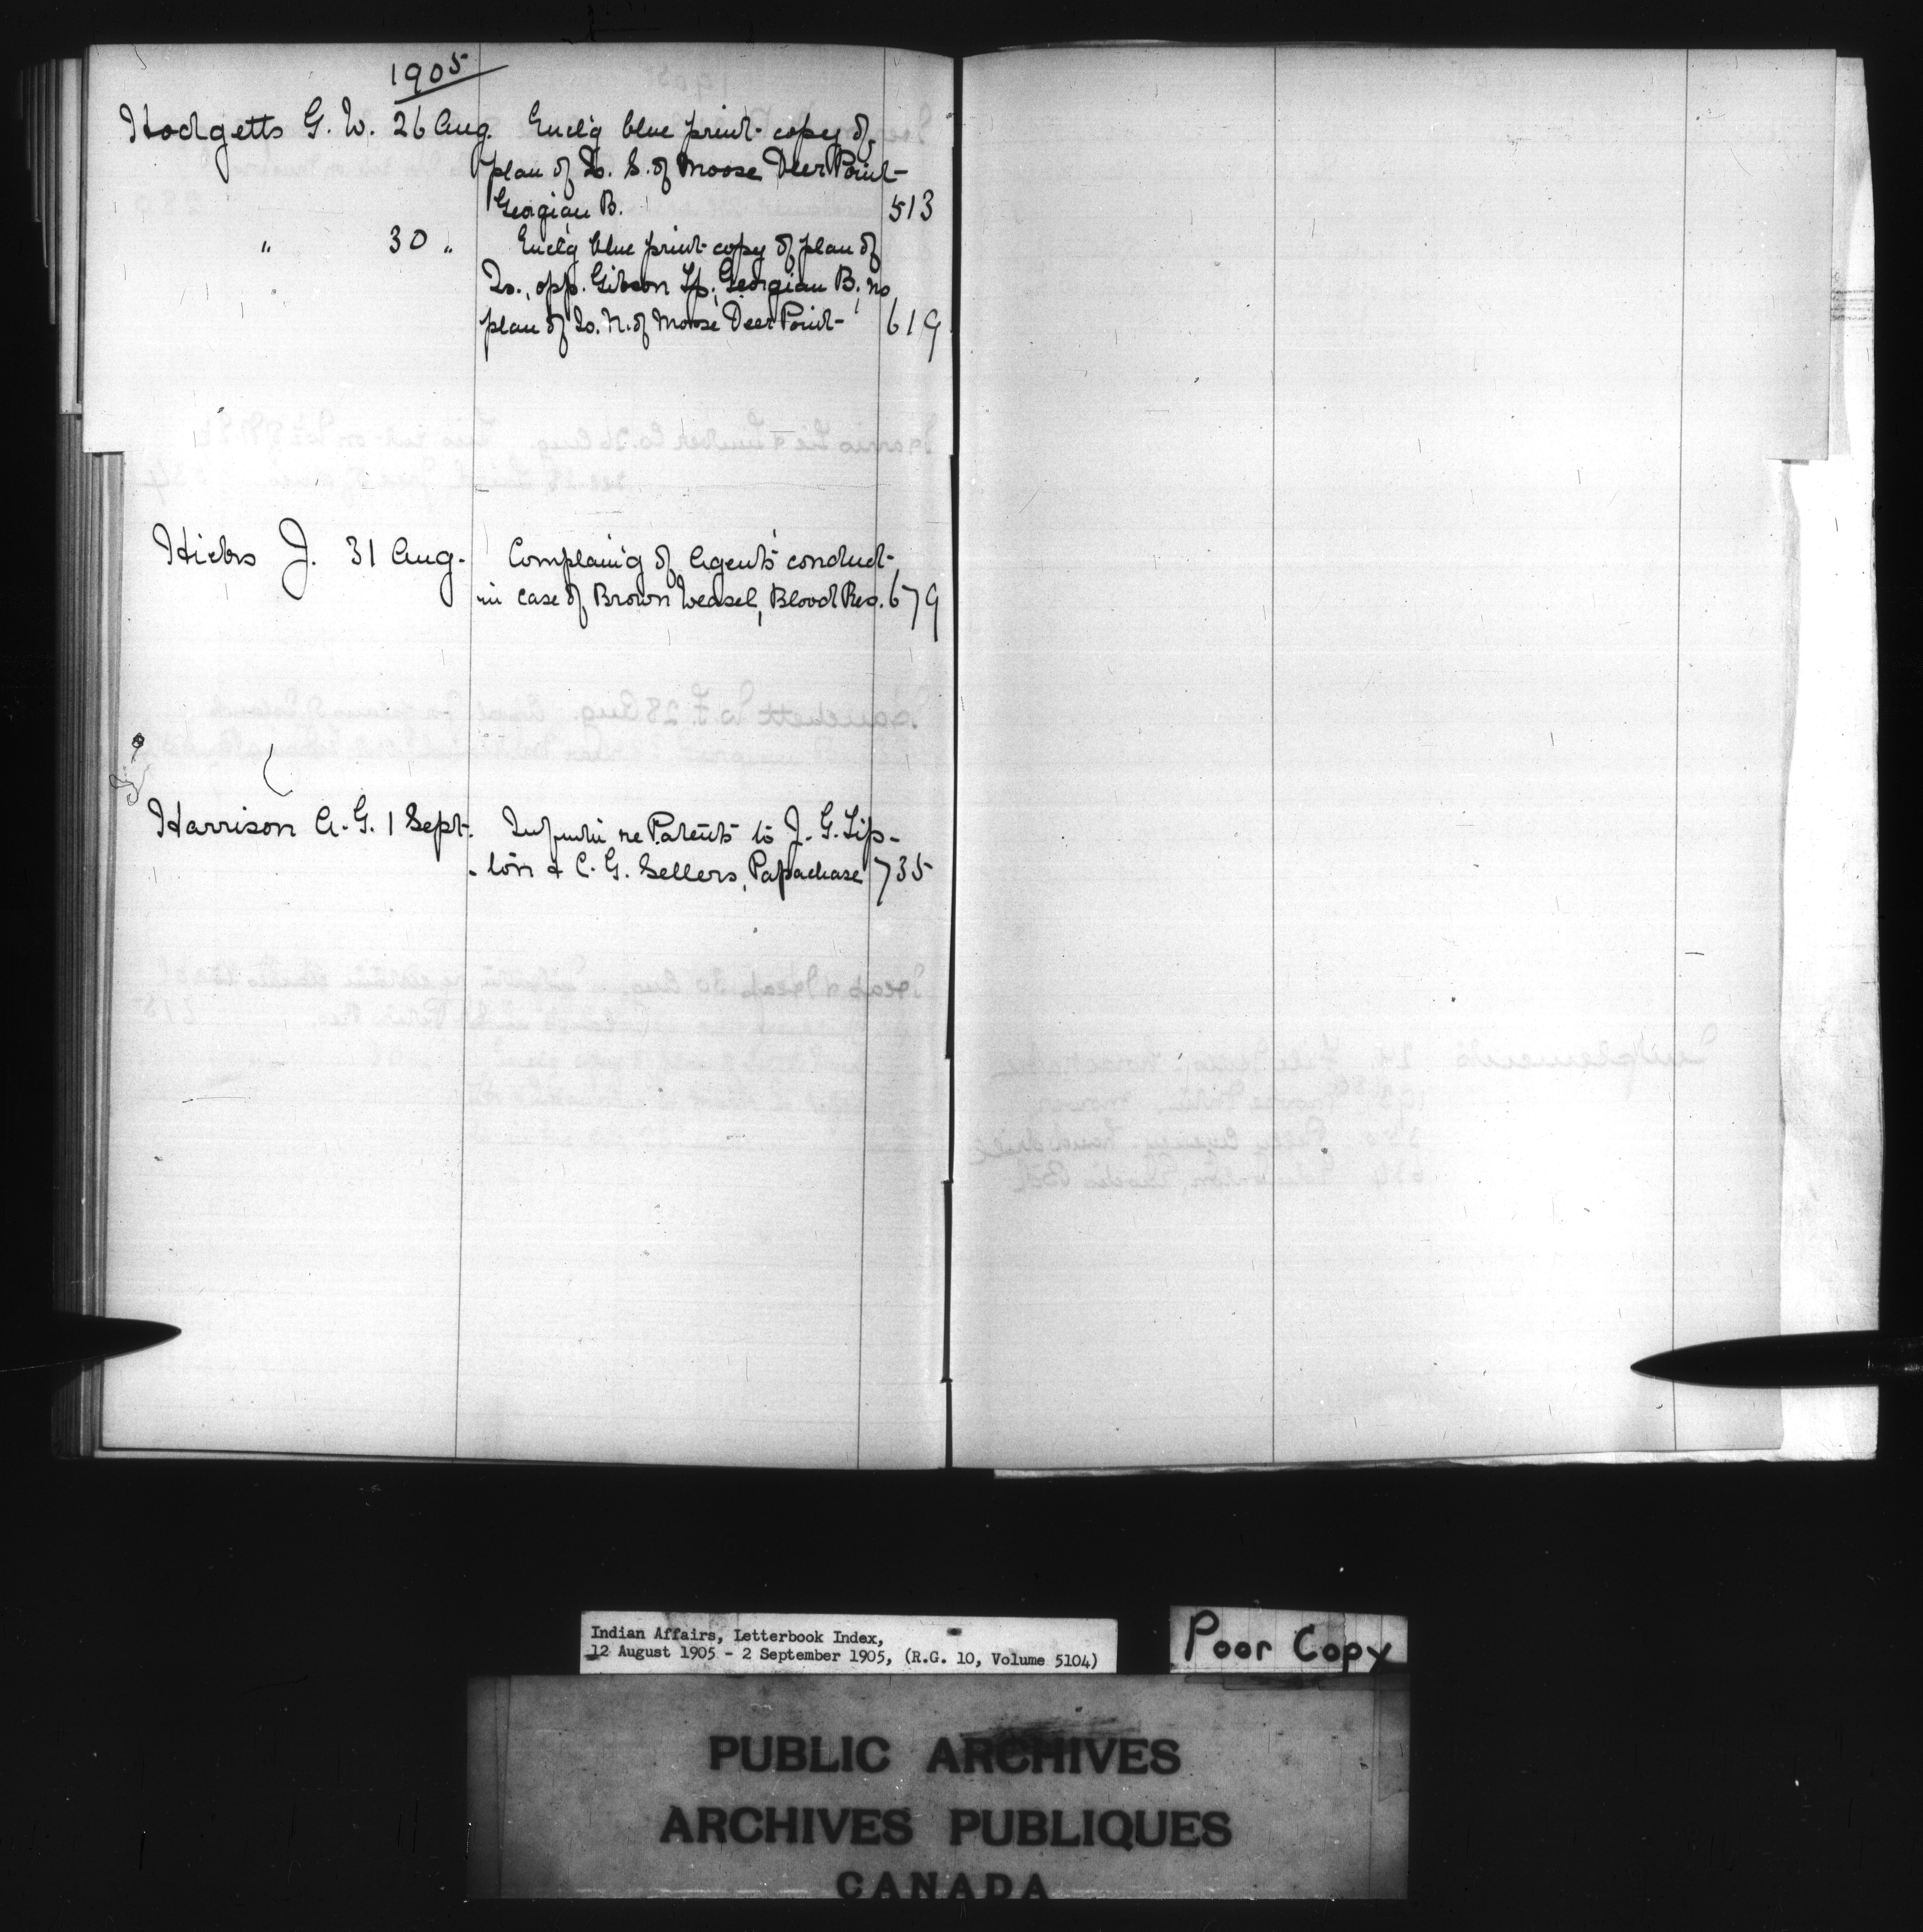 1905
Hodgetts G. W. 26 Aug. Encl'g blue print copy of
plan of Is. S. of Moose Deer Point
Georgian B. 513
" 30 " Encl'g blue print copy of plan of
Is., opp. Gibson Tp., Georgian B., no
plan of Is. N. of Moose Deer Point 619
Hicks J. 31 Aug. Complain'g of Agent's conduct
in case of Brown Weasel, Blood Res. 679
Harrison A. G. 1 Sept. re Patents to J. G. Tip-
ton & C. G. Sellers, Papachase 735
Indian Affairs, Letterbook Index,
12 August 1905 - 2 September 1905, (R.G. 10, Volume 5104)
Poor Copy
PUBLIC ARCHIVES
ARCHIVES PUBLIQUES
CANADA